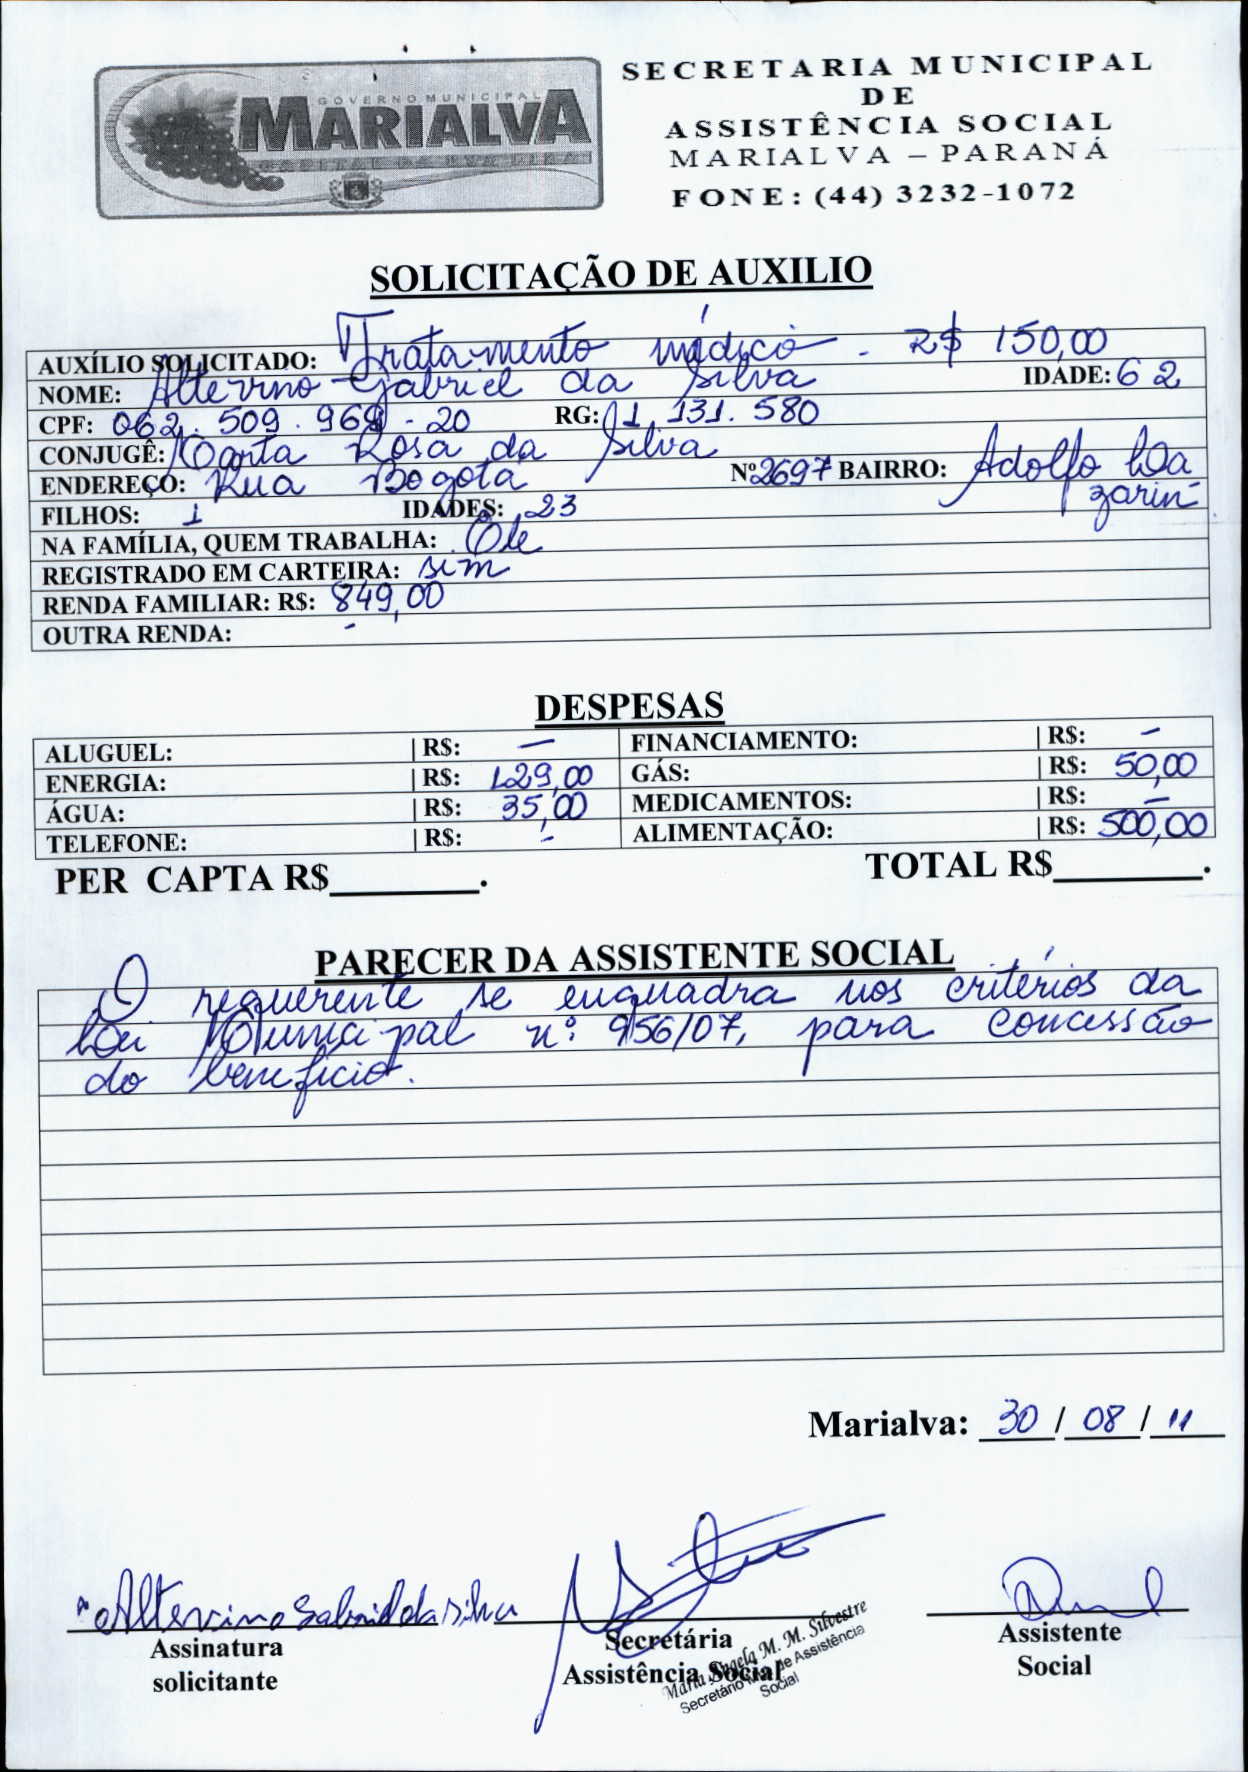 GOVERNO MUNICIPAL
MARIALVA
CAPITAL DA UVA FINA
SECRETARIA MUNICIPAL
DE
ASSISTÊNCIA SOCIAL
MARIALVA – PARANÁ
FONE: (44) 3232-1072
SOLICITAÇÃO DE AUXILIO
AUXÍLIO SOLICITADO: Tratamento médico - R$ 150,00
NOME: Altevino Gabriel da Silva IDADE: 62
CPF: 062.509.969-20 RG: 1.131.580
CONJUGÊ: Marta Rosa da Silva
ENDEREÇO: Rua Bogotá Nº 2697 BAIRRO: Adolfo La
zarin
FILHOS: 1 IDADES: 23
NA FAMÍLIA, QUEM TRABALHA: Ele
REGISTRADO EM CARTEIRA: sim
RENDA FAMILIAR: R$: 849,00
OUTRA RENDA: -
DESPESAS
ALUGUEL: | R$: — FINANCIAMENTO: | R$: -
ENERGIA: | R$: 129,00 GÁS: | R$: 50,00
ÁGUA: | R$: 35,00 MEDICAMENTOS: | R$: —
TELEFONE: | R$: - ALIMENTAÇÃO: | R$: 500,00
PER CAPTA R$________. TOTAL R$________.
PARECER DA ASSISTENTE SOCIAL
O requerente se enquadra nos critérios da
Lei Municipal nº 956/07, para concessão
do benefício.
Marialva: 30/08/11
Altevino Gabriel da Silva
Assinatura Secretária Assistente
solicitante Assistência Social Social
Maria Angela M. M. Silvestre
Secretário Mun. de Assistência
Social